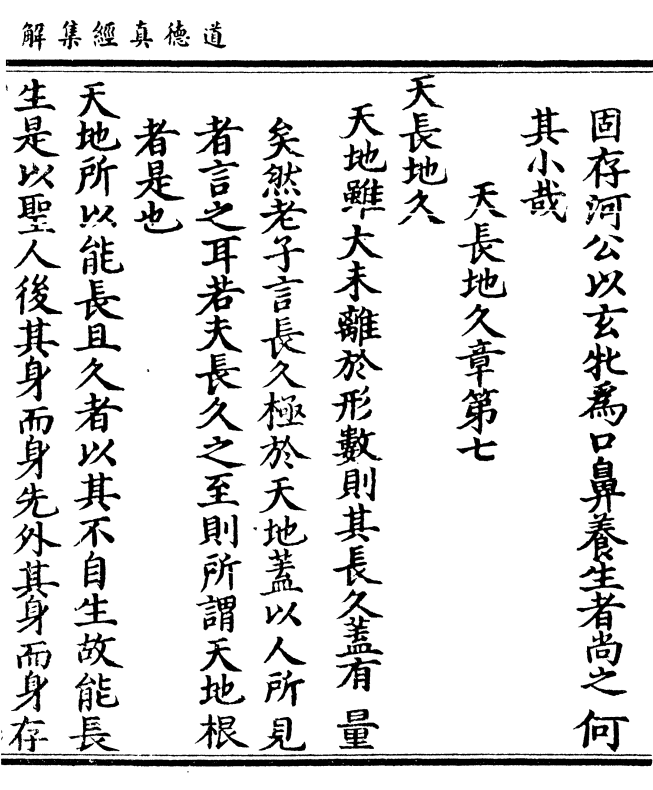 道德真經集解
固存河公以玄牝爲口鼻養生者尚之何
其小哉
天長地久章第七
天長地久
天地雖大未離於形數則其長久蓋有量
矣然老子言長久極於天地蓋以人所見
者言之耳若夫長久之至則所謂天地根
者是也
天地所以能長且久者以其不自生故能長
生是以聖人後其身而身先外其身而身存